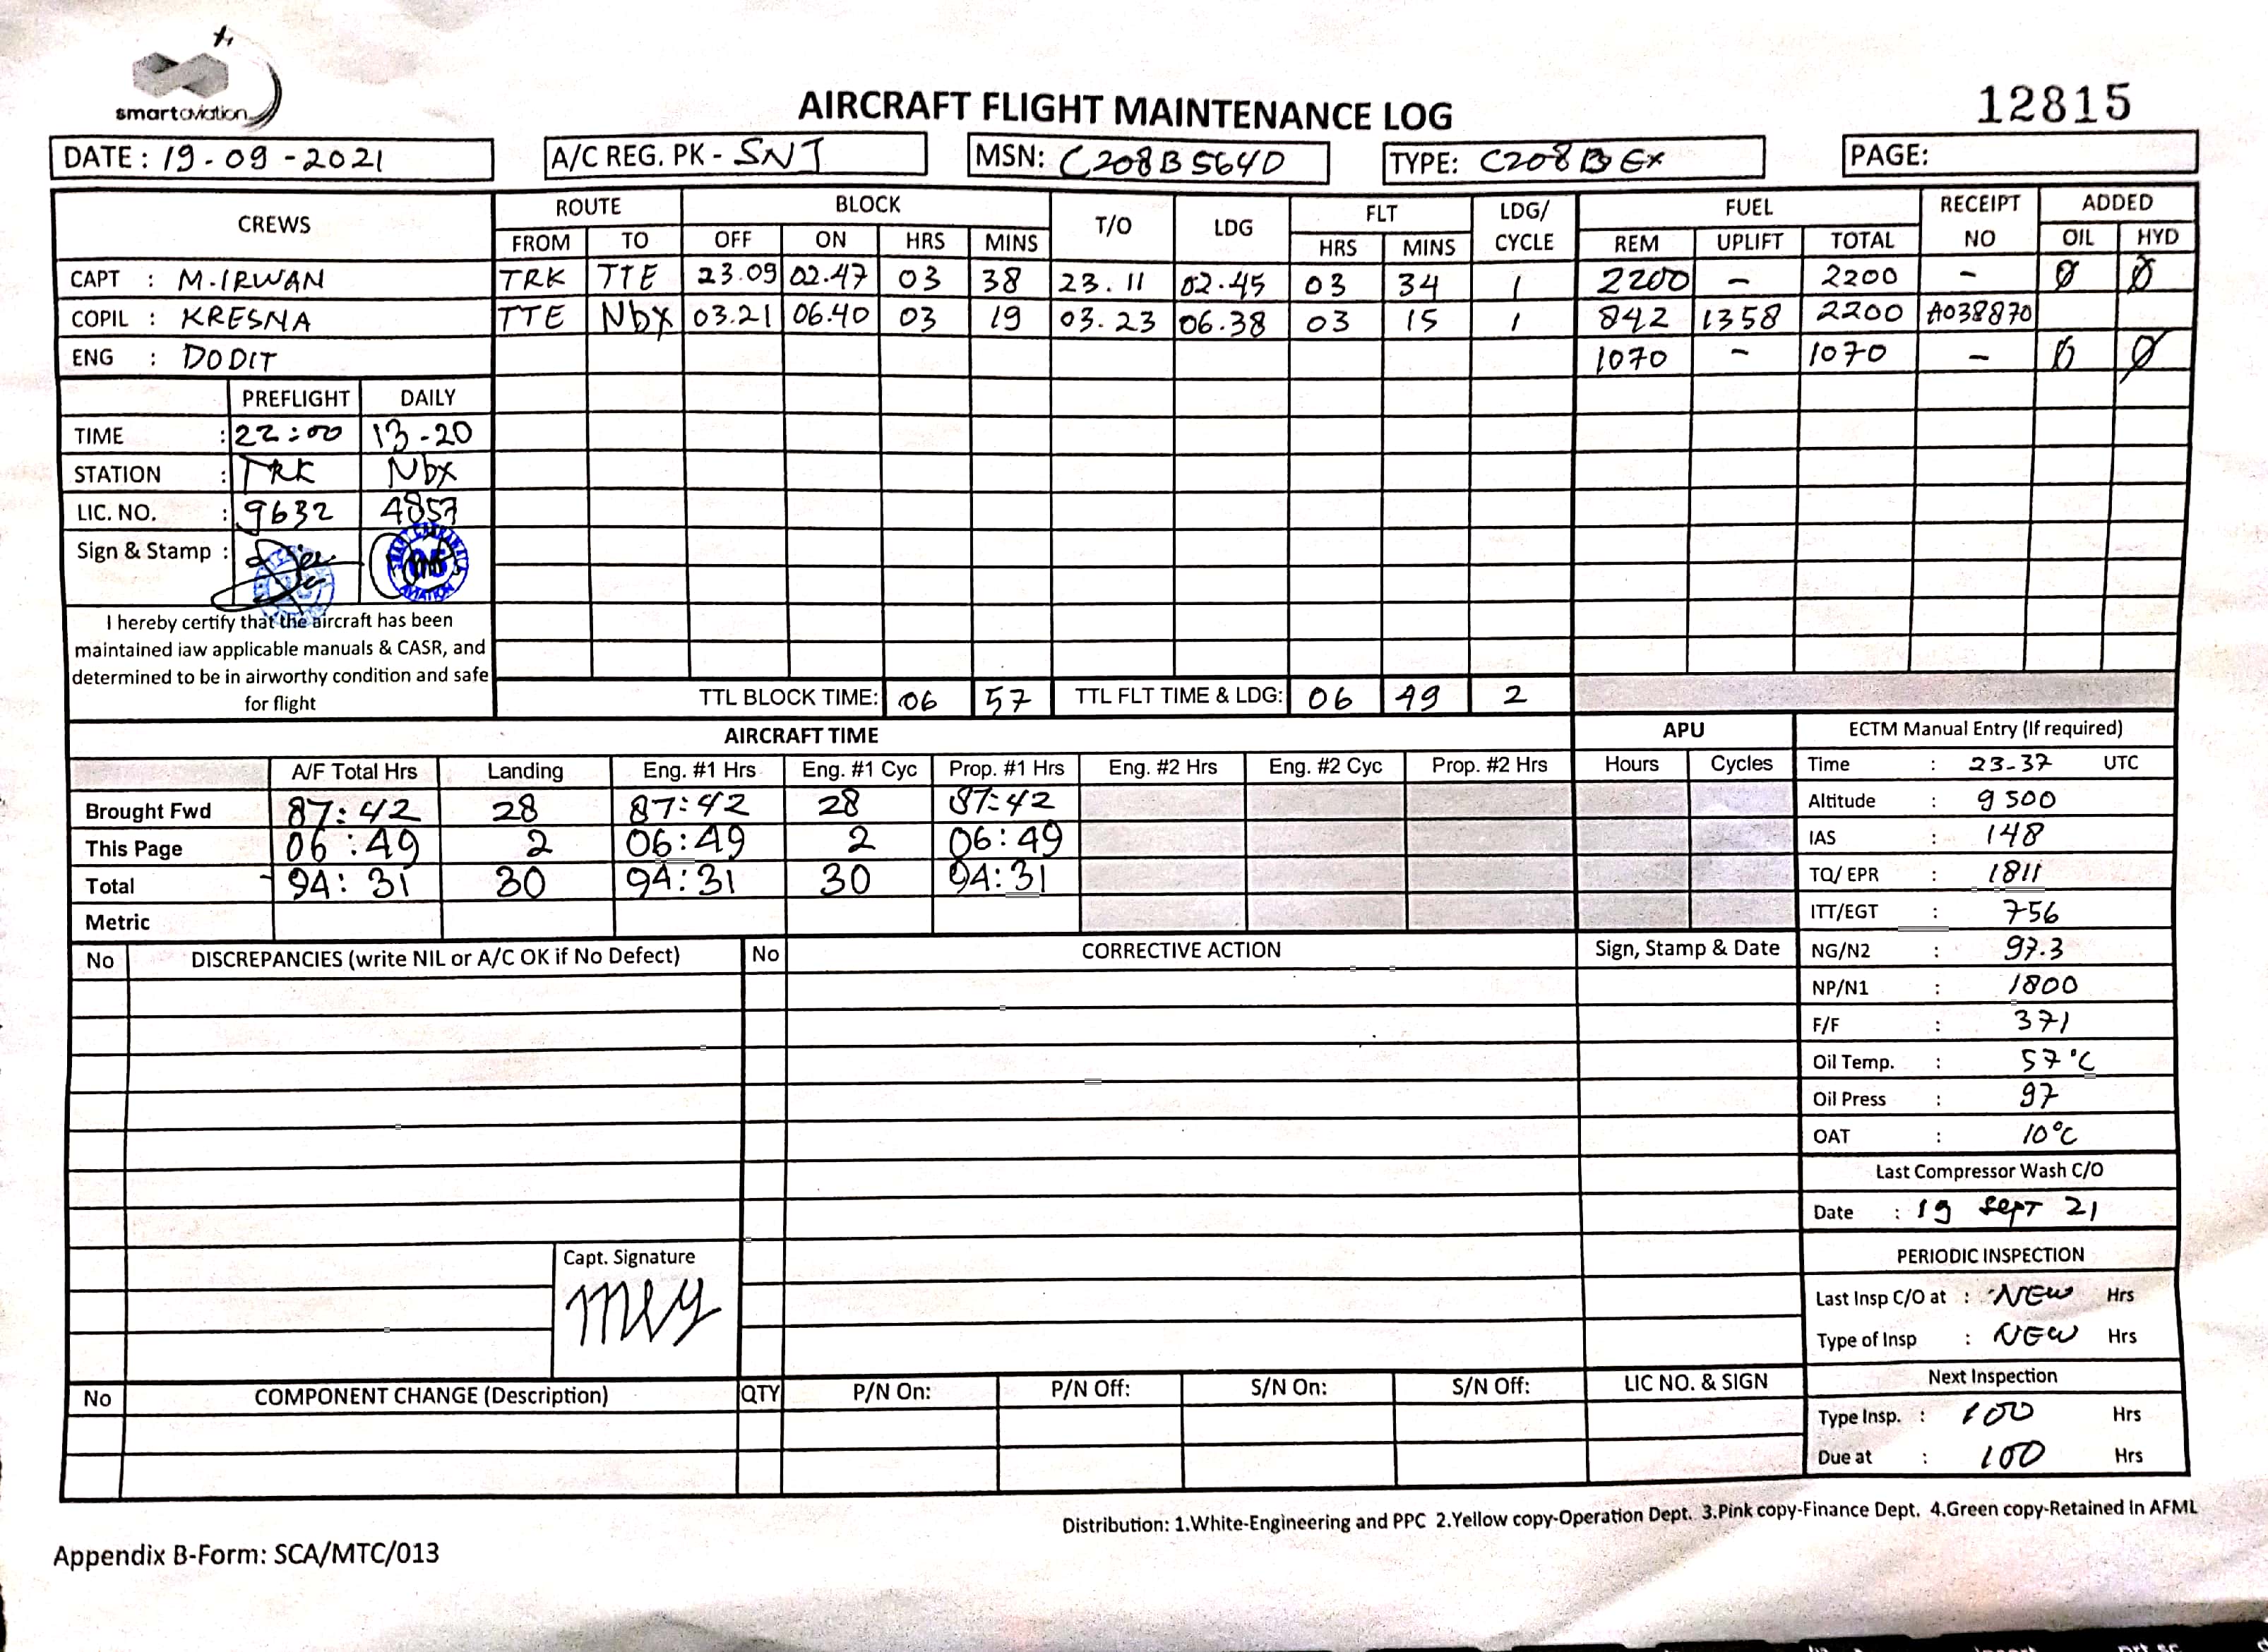 smartaviation
AIRCRAFT FLIGHT MAINTENANCE LOG
12815
DATE : 19-09-2021 A/C REG. PK - SNJ MSN: C208B5640 TYPE: C208B EX PAGE:
CREWS ROUTE BLOCK T/O LDG FLT LDG/ CYCLE FUEL RECEIPT NO ADDED
FROM TO OFF ON HRS MINS HRS MINS REM UPLIFT TOTAL OIL HYD
CAPT : M.IRWAN TRK TTE 23.09 02.47 03 38 23.11 02.45 03 34 1 2200 - 2200 - Ø Ø
COPIL : KRESNA TTE Nbx 03.21 06.40 03 19 03.23 06.38 03 15 1 842 1358 2200 A038870
ENG : DODIT 1070 - 1070 - Ø Ø
PREFLIGHT DAILY
TIME : 22:00 13-20
STATION : TRK Nbx
LIC. NO. : 9632 4857
Sign & Stamp :
AVIATION
I hereby certify that the aircraft has been
maintained iaw applicable manuals & CASR, and
determined to be in airworthy condition and safe
for flight
TTL BLOCK TIME: 06 57 TTL FLT TIME & LDG: 06 49 2
AIRCRAFT TIME APU
A/F Total Hrs Landing Eng. #1 Hrs Eng. #1 Cyc Prop. #1 Hrs Eng. #2 Hrs Eng. #2 Cyc Prop. #2 Hrs Hours Cycles
Brought Fwd 87:42 28 87:42 28 87:42
This Page 06:49 2 06:49 2 06:49
Total 94:31 30 94:31 30 94:31
Metric
ECTM Manual Entry (If required)
Time : 23-37 UTC
Altitude : 9500
IAS : 148
TQ/ EPR : 1811
ITT/EGT : 756
NG/N2 : 97.3
NP/N1 : 1800
F/F : 371
Oil Temp. : 57°C
Oil Press : 97
OAT : 10°C
Last Compressor Wash C/O
Date : 19 SEPT 21
PERIODIC INSPECTION
Last Insp C/O at : NEW Hrs
Type of Insp : NEW Hrs
Next Inspection
Type Insp. : 100 Hrs
Due at : 100 Hrs
No DISCREPANCIES (write NIL or A/C OK if No Defect) No CORRECTIVE ACTION Sign, Stamp & Date
Capt. Signature
No COMPONENT CHANGE (Description) QTY P/N On: P/N Off: S/N On: S/N Off: LIC NO. & SIGN
Distribution: 1.White-Engineering and PPC 2.Yellow copy-Operation Dept. 3.Pink copy-Finance Dept. 4.Green copy-Retained In AFML
Appendix B-Form: SCA/MTC/013